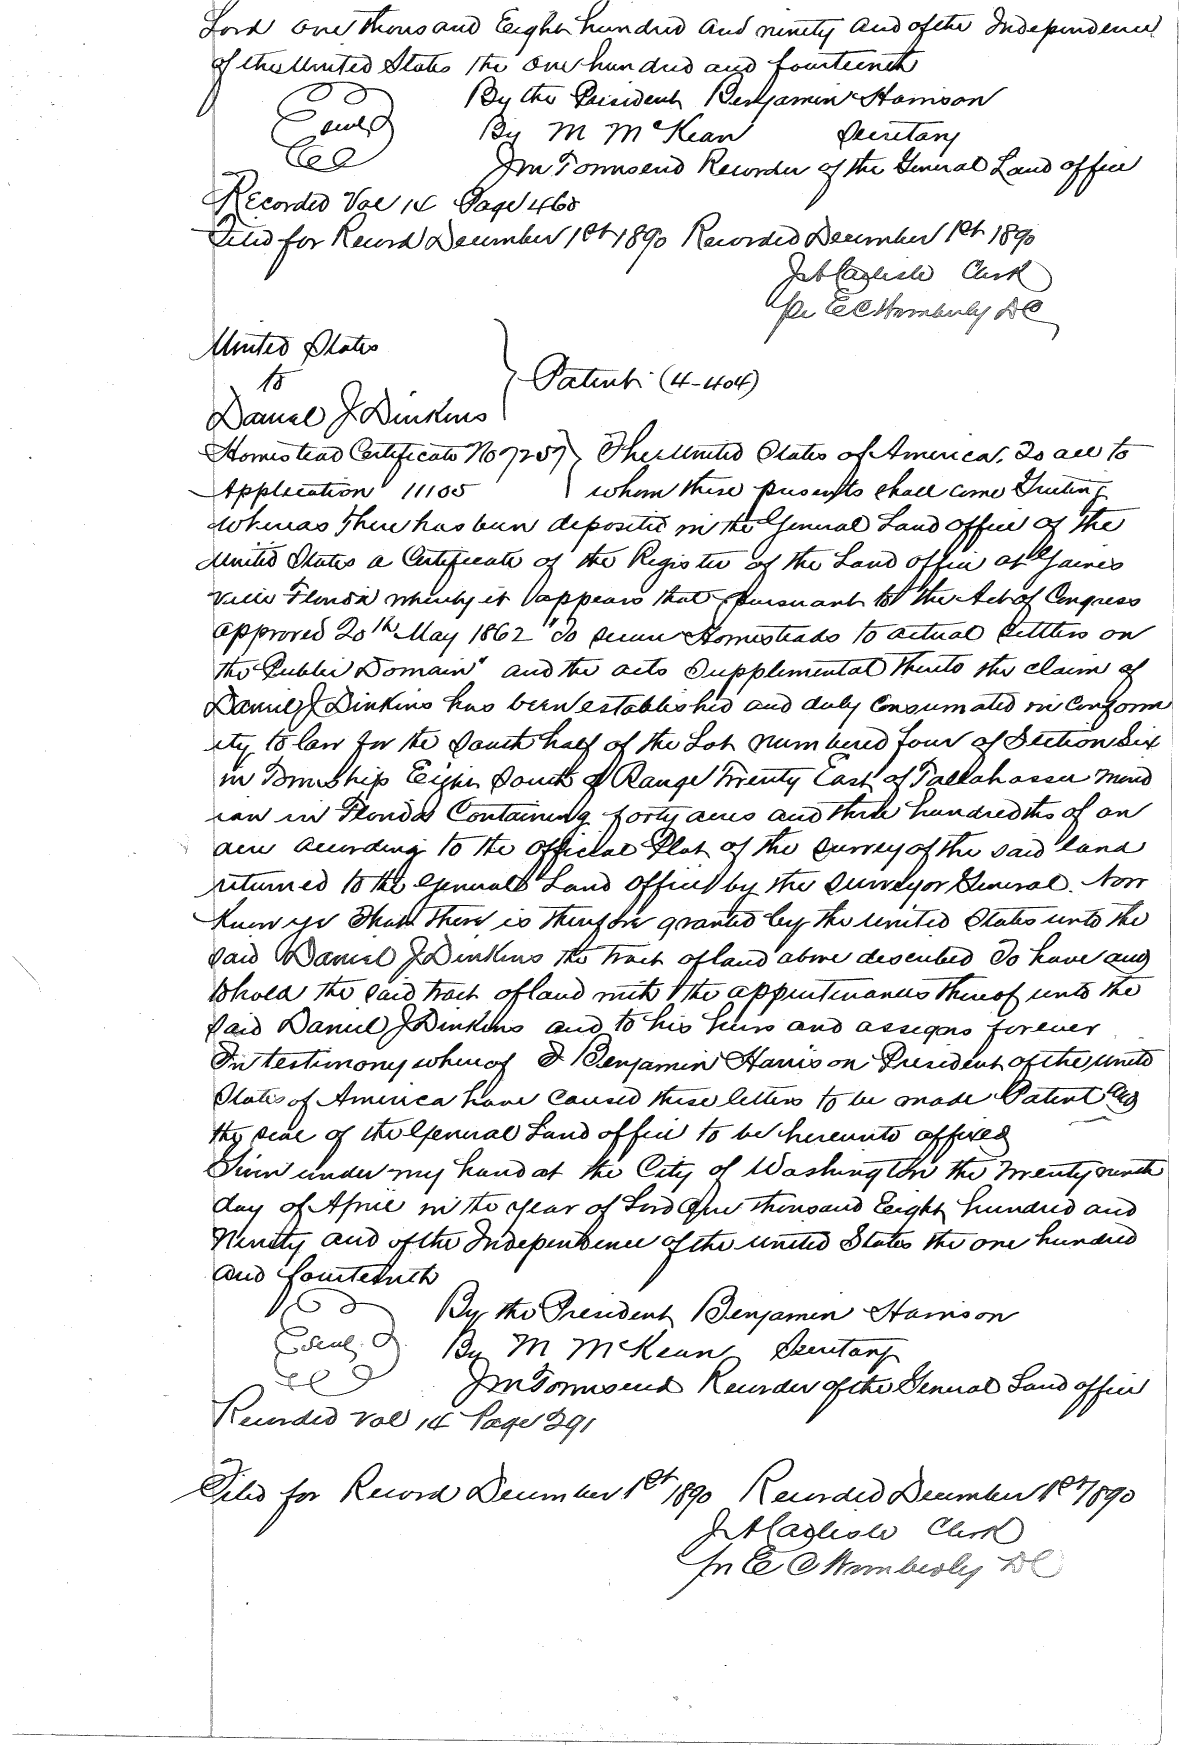 Lord One thousand Eight hundred and ninety and of the Independence
of the United States the One hundred and fourteenth
By the President Benjamin Harrison
Seal By M McKean Secretary
JM Townsend Recorder of the General Land office
Recorded Vol 14 Page 468
Filed for Record December 1st 1890 Recorded December 1st 1890
JA Carlisle Clerk
per E C Wimberly DC
United States
to
Patent (4-404)
Daniel J Dinkins
Homestead Certificate No 7257 The United States of America, To all to
Application 11105 whom these presents shall come Greeting
Whereas There has been deposited in the General Land office of the
United States a Certificate of the Register of the Land office at Gaines
ville Florida whereby it appears that pursuant to the Act of Congress
approved 20th May 1862 "To secure Homesteads to actual settlers on
the Public Domain" and the acts supplemental thereto the claim of
Daniel J Dinkins has been established and duly Consumated in Conform
ity to law for the South half of the Lot numbered four of Section Six
in Township Eight South of Range Twenty East of Tallahassee Merid
ian in Florida Containing forty acres and three hundredths of an
acre according to the official Plat of the survey of the said land
returned to the General Land Office by the Surveyor General. Now
Know ye That there is therefore granted by the United States unto the
said Daniel J Dinkins the tract of land above described To have and
to hold the said tract of land with the appurtenances thereof unto the
said Daniel J Dinkins and to his heirs and assigns forever
In testimony whereof I Benjamin Harrison President of the United
States of America have caused these letters to be made Patent and
the seal of the General Land office to be hereunto affixed
Given under my hand at the City of Washington the twenty ninth
day of April in the year of Lord One thousand Eight hundred and
Ninety and of the Independence of the United States the one hundred
and fourteenth
By the President Benjamin Harrison
Seal By M McKean Secretary
JM Townsend Recorder of the General Land office
Recorded Vol 14 Page 391
Filed for Record December 1st 1890 Recorded December 1st 1890
JA Carlisle Clerk
per E C Wimberly DC